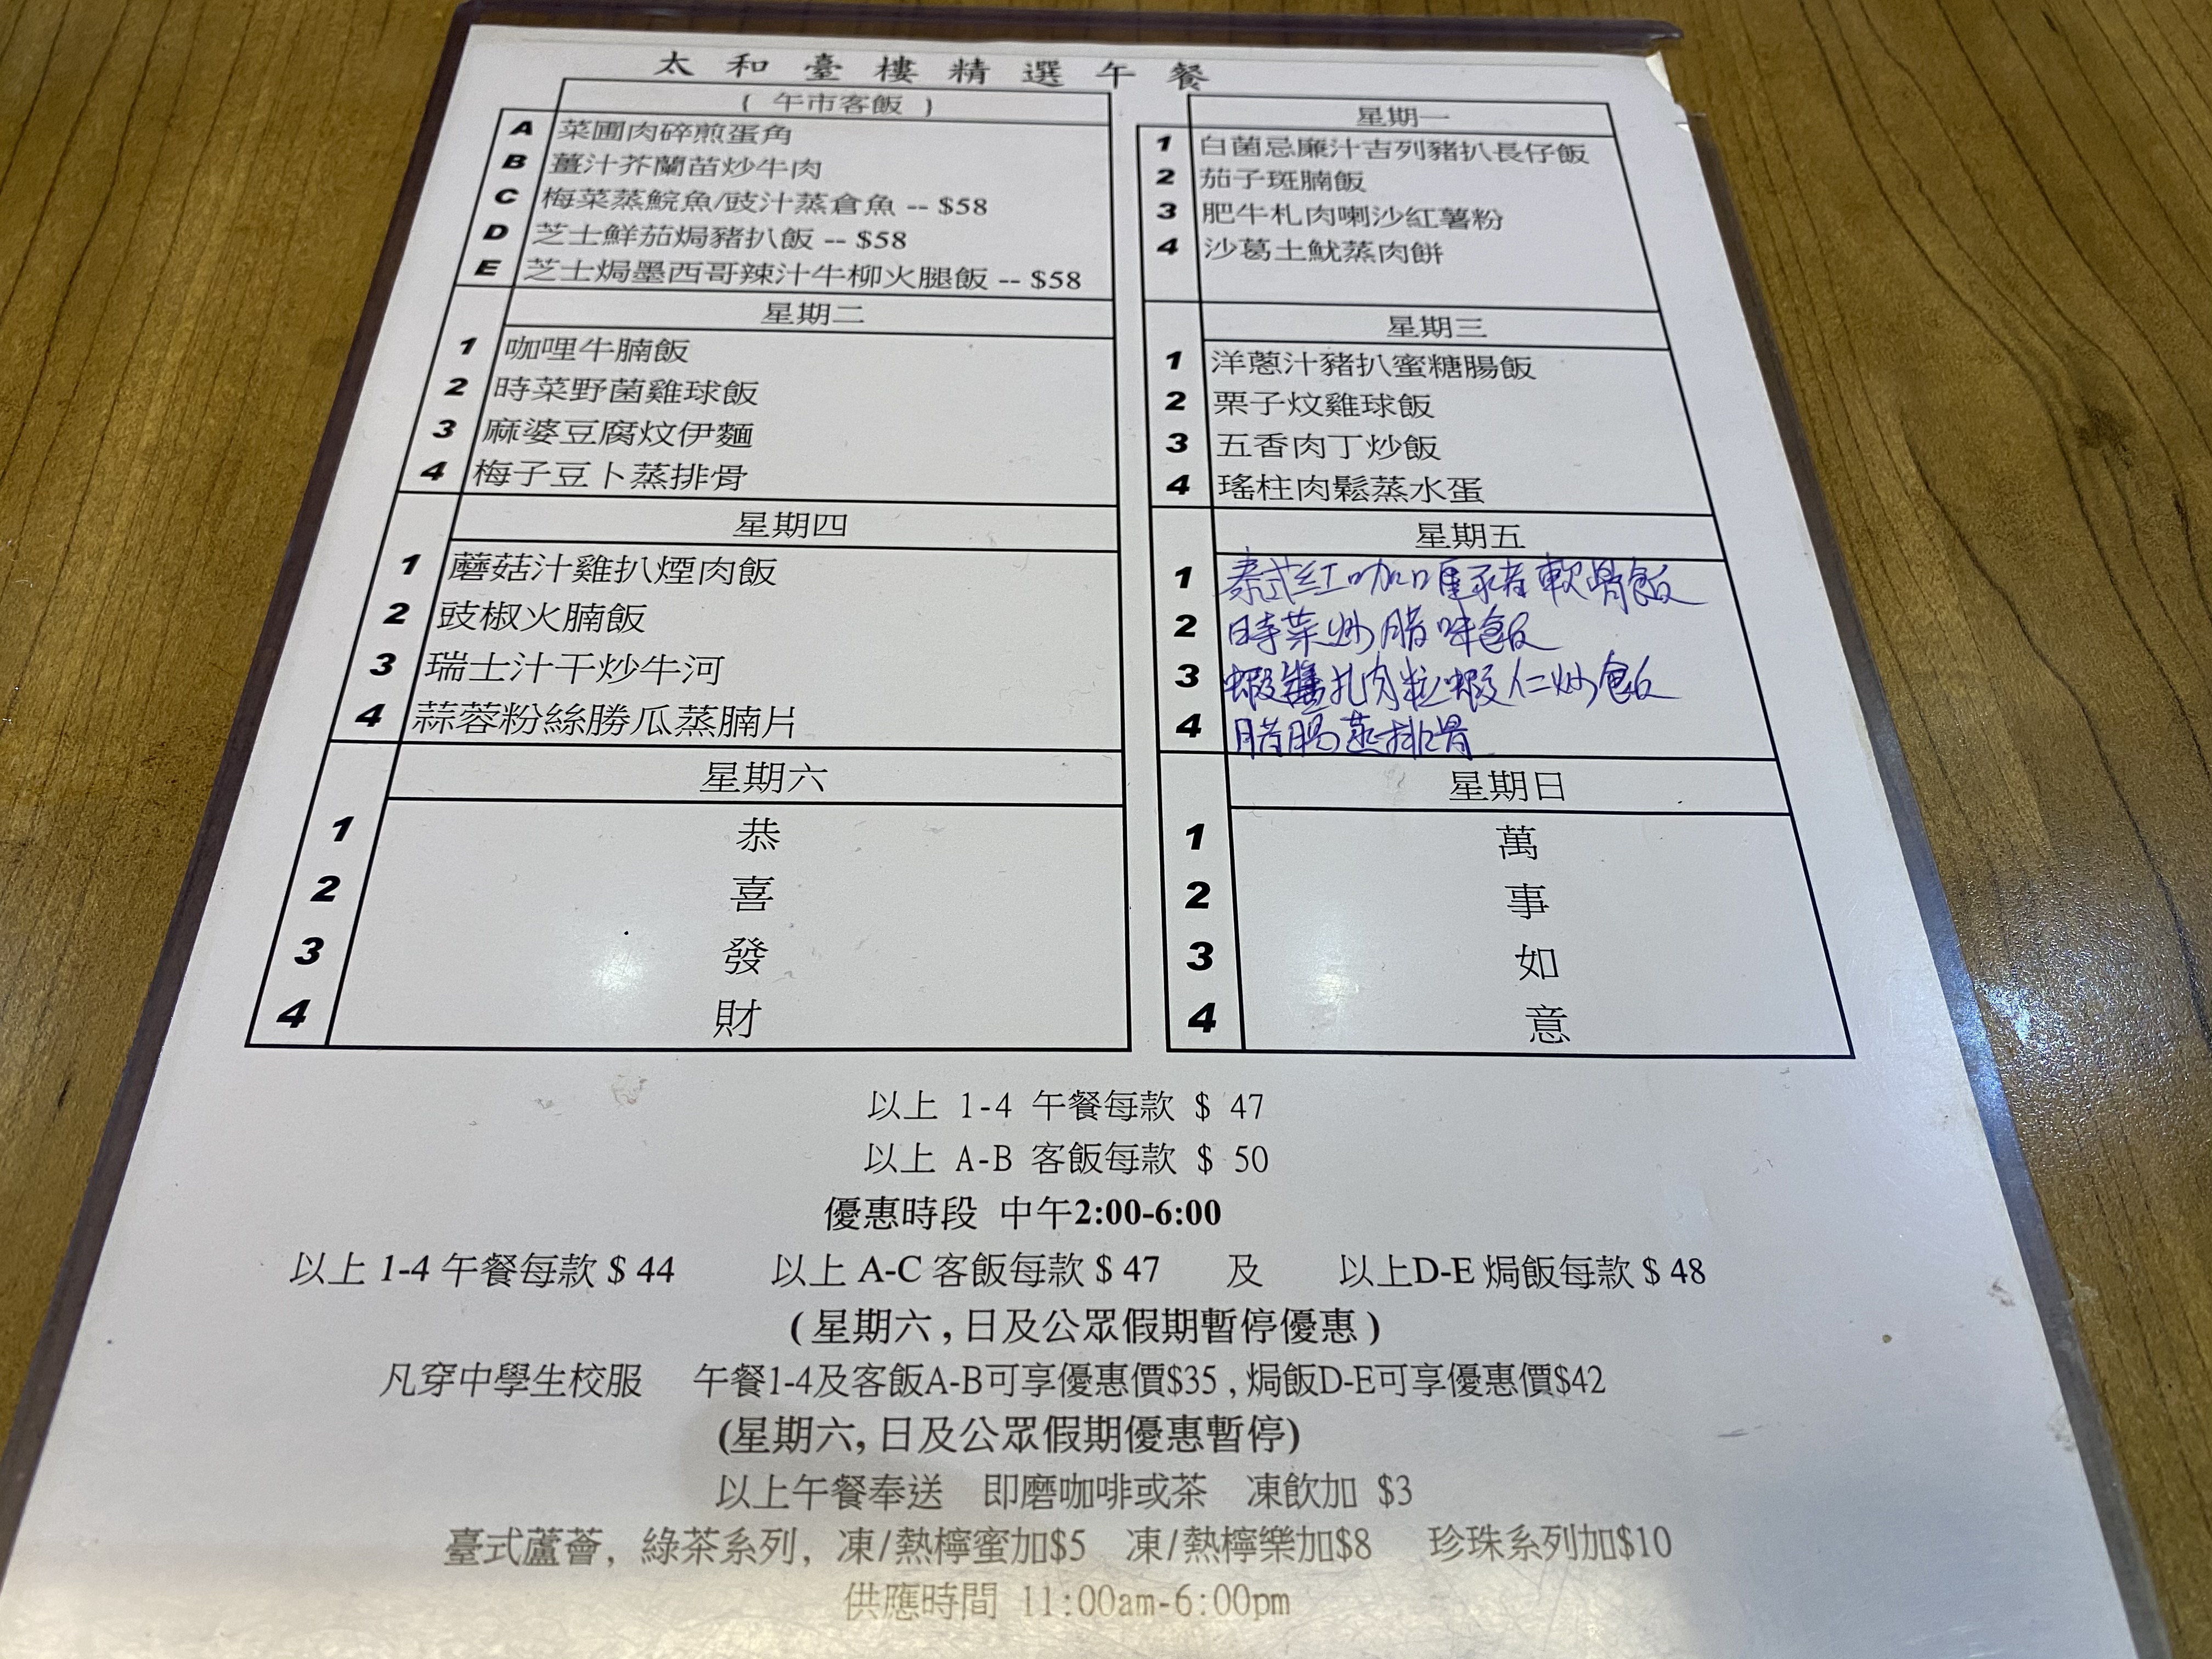 太和臺樓精選午餐
( 午市客飯 )
A 菜圃肉碎煎蛋角
B 薑汁芥蘭苗炒牛肉
C 梅菜蒸鯇魚/豉汁蒸倉魚 -- $58
D 芝士鮮茄焗豬扒飯 -- $58
E 芝士焗墨西哥辣汁牛柳火腿飯 -- $58
星期一
1 白菌忌廉汁吉列豬扒長仔飯
2 茄子斑腩飯
3 肥牛札肉喇沙紅薯粉
4 沙葛土魷蒸肉餅
星期二
1 咖哩牛腩飯
2 時菜野菌雞球飯
3 麻婆豆腐炆伊麵
4 梅子豆卜蒸排骨
星期三
1 洋蔥汁豬扒蜜糖腸飯
2 栗子炆雞球飯
3 五香肉丁炒飯
4 瑤柱肉鬆蒸水蛋
星期四
1 蘑菇汁雞扒煙肉飯
2 豉椒火腩飯
3 瑞士汁干炒牛河
4 蒜蓉粉絲勝瓜蒸腩片
星期五
1 泰式紅咖喱豬軟骨飯
2 時菜炒腊味飯
3 蝦醬扎肉粒蝦仁炒飯
4 腊腸蒸排骨
星期六
1 恭
2 喜
3 發
4 財
星期日
1 萬
2 事
3 如
4 意
以上 1-4 午餐每款 $ 47
以上 A-B 客飯每款 $ 50
優惠時段 中午2:00-6:00
以上 1-4 午餐每款 $ 44 以上 A-C 客飯每款 $ 47 及 以上D-E 焗飯每款 $ 48
( 星期六 , 日及公眾假期暫停優惠 )
凡穿中學生校服 午餐1-4及客飯A-B可享優惠價$35 , 焗飯D-E可享優惠價$42
(星期六, 日及公眾假期優惠暫停)
以上午餐奉送 即磨咖啡或茶 凍飲加 $3
臺式蘆薈, 綠茶系列, 凍/熱檸蜜加$5 凍/熱檸樂加$8 珍珠系列加$10
供應時間 11:00am-6:00pm